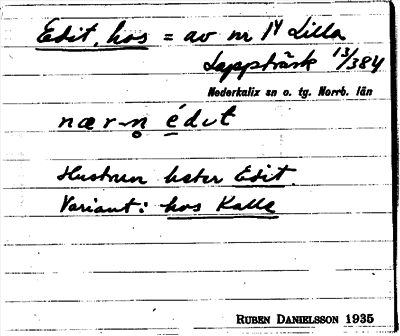 Edit, hos = av nr 14 Lilla
Lappträsk 13/384
Nederkalix sn o. tg. Norrb. län
nær-n̥ édit
Hustrun heter Edit.
Variant: hos Kalle
RUBEN DANIELSSON 1935